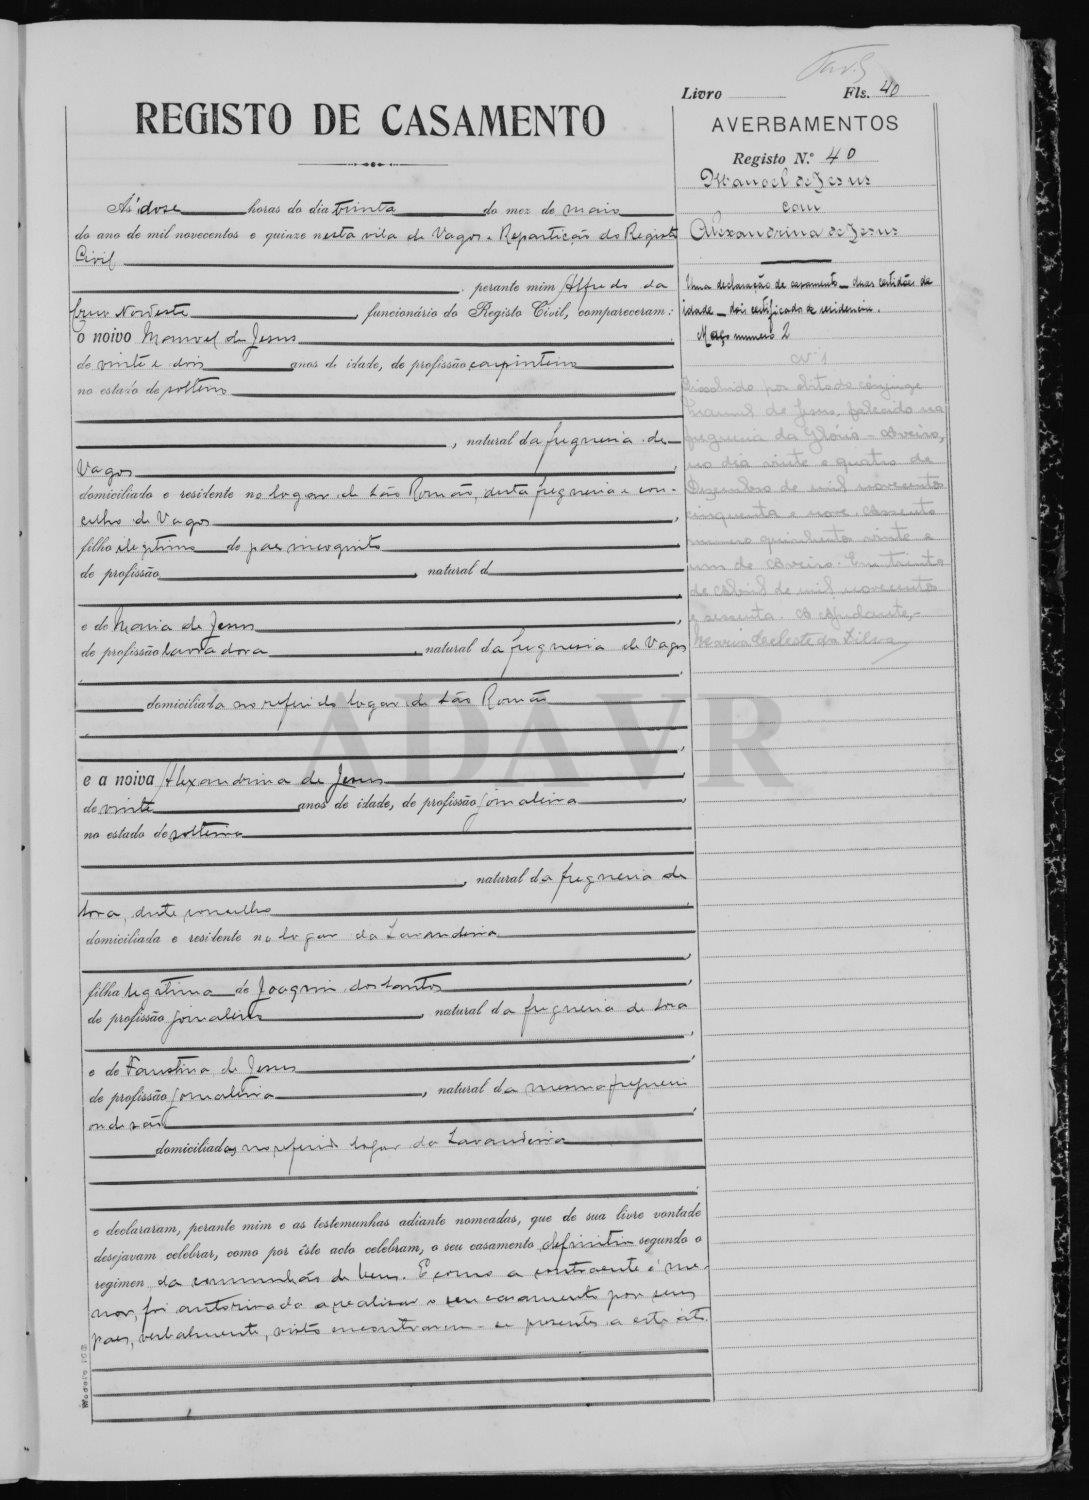 Livro Fls. 40
REGISTO DE CASAMENTO
AVERBAMENTOS
Registo N.º 40
Manoel de Jesus
com
Alexandrina de Jesus
Uma declaração de casamento duas certidões de
idade dois certificados de residencia.
Maço numero 2
Nº 1
Dissolvido por obito do cônjuge
Manuel de Jesus, falecido na
freguesia da Glória - Aveiro,
no dia vinte e quatro de
Dezembro de mil novecentos
cinquenta e nove. Assento
numero quinhentos vinte e
um de Aveiro. Em trinta
de Abril de mil novecentos
e sessenta. O Ajudante,
Maria Celeste da Silva
Ás dose horas do dia trinta do mez de maio
do ano de mil novecentos e quinze nesta vila de Vagos e Repartição do Registo
Civil
perante mim Alfredo da
Cruz Nordeste, funcionário do Registo Civil, compareceram:
o noivo Manuel de Jesus
de vinte e dois anos de idade, de profissão carpinteiro
no estado de solteiro
, natural da freguesia de
Vagos
domiciliado e residente no logar de São Romão, desta freguesia e con-
celho de Vagos
filho ilegitimo de pae incognito
de profissão, natural d
e de Maria de Jesus
de profissão lavradora, natural da freguesia de Vagos
domiciliada no referido logar de São Romão
ADAVR
e a noiva Alexandrina de Jesus
de vinte anos de idade, de profissão jornaleira
no estado de solteira
, natural da freguesia de
Soza, deste concelho
domiciliada e residente no logar da Lavandeira
filha legitima de Joaquim dos Santos
de profissão jornaleiro, natural da freguesia de Soza
e de Faustina de Jesus
de profissão jornaleira, natural da mesma freguesia
onde são
domiciliados no referido logar da Lavandeira
e declararam, perante mim e as testemunhas adiante nomeadas, que de sua livre vontade
desejavam celebrar, como por êste acto celebram, o seu casamento definitivo segundo o
regimen da communhão de bens. E como a contraente é me-
nor, foi autorisada a realisar o seu casamento por seus
paes, verbalmente, visto encontrarem-se presentes a este áto.